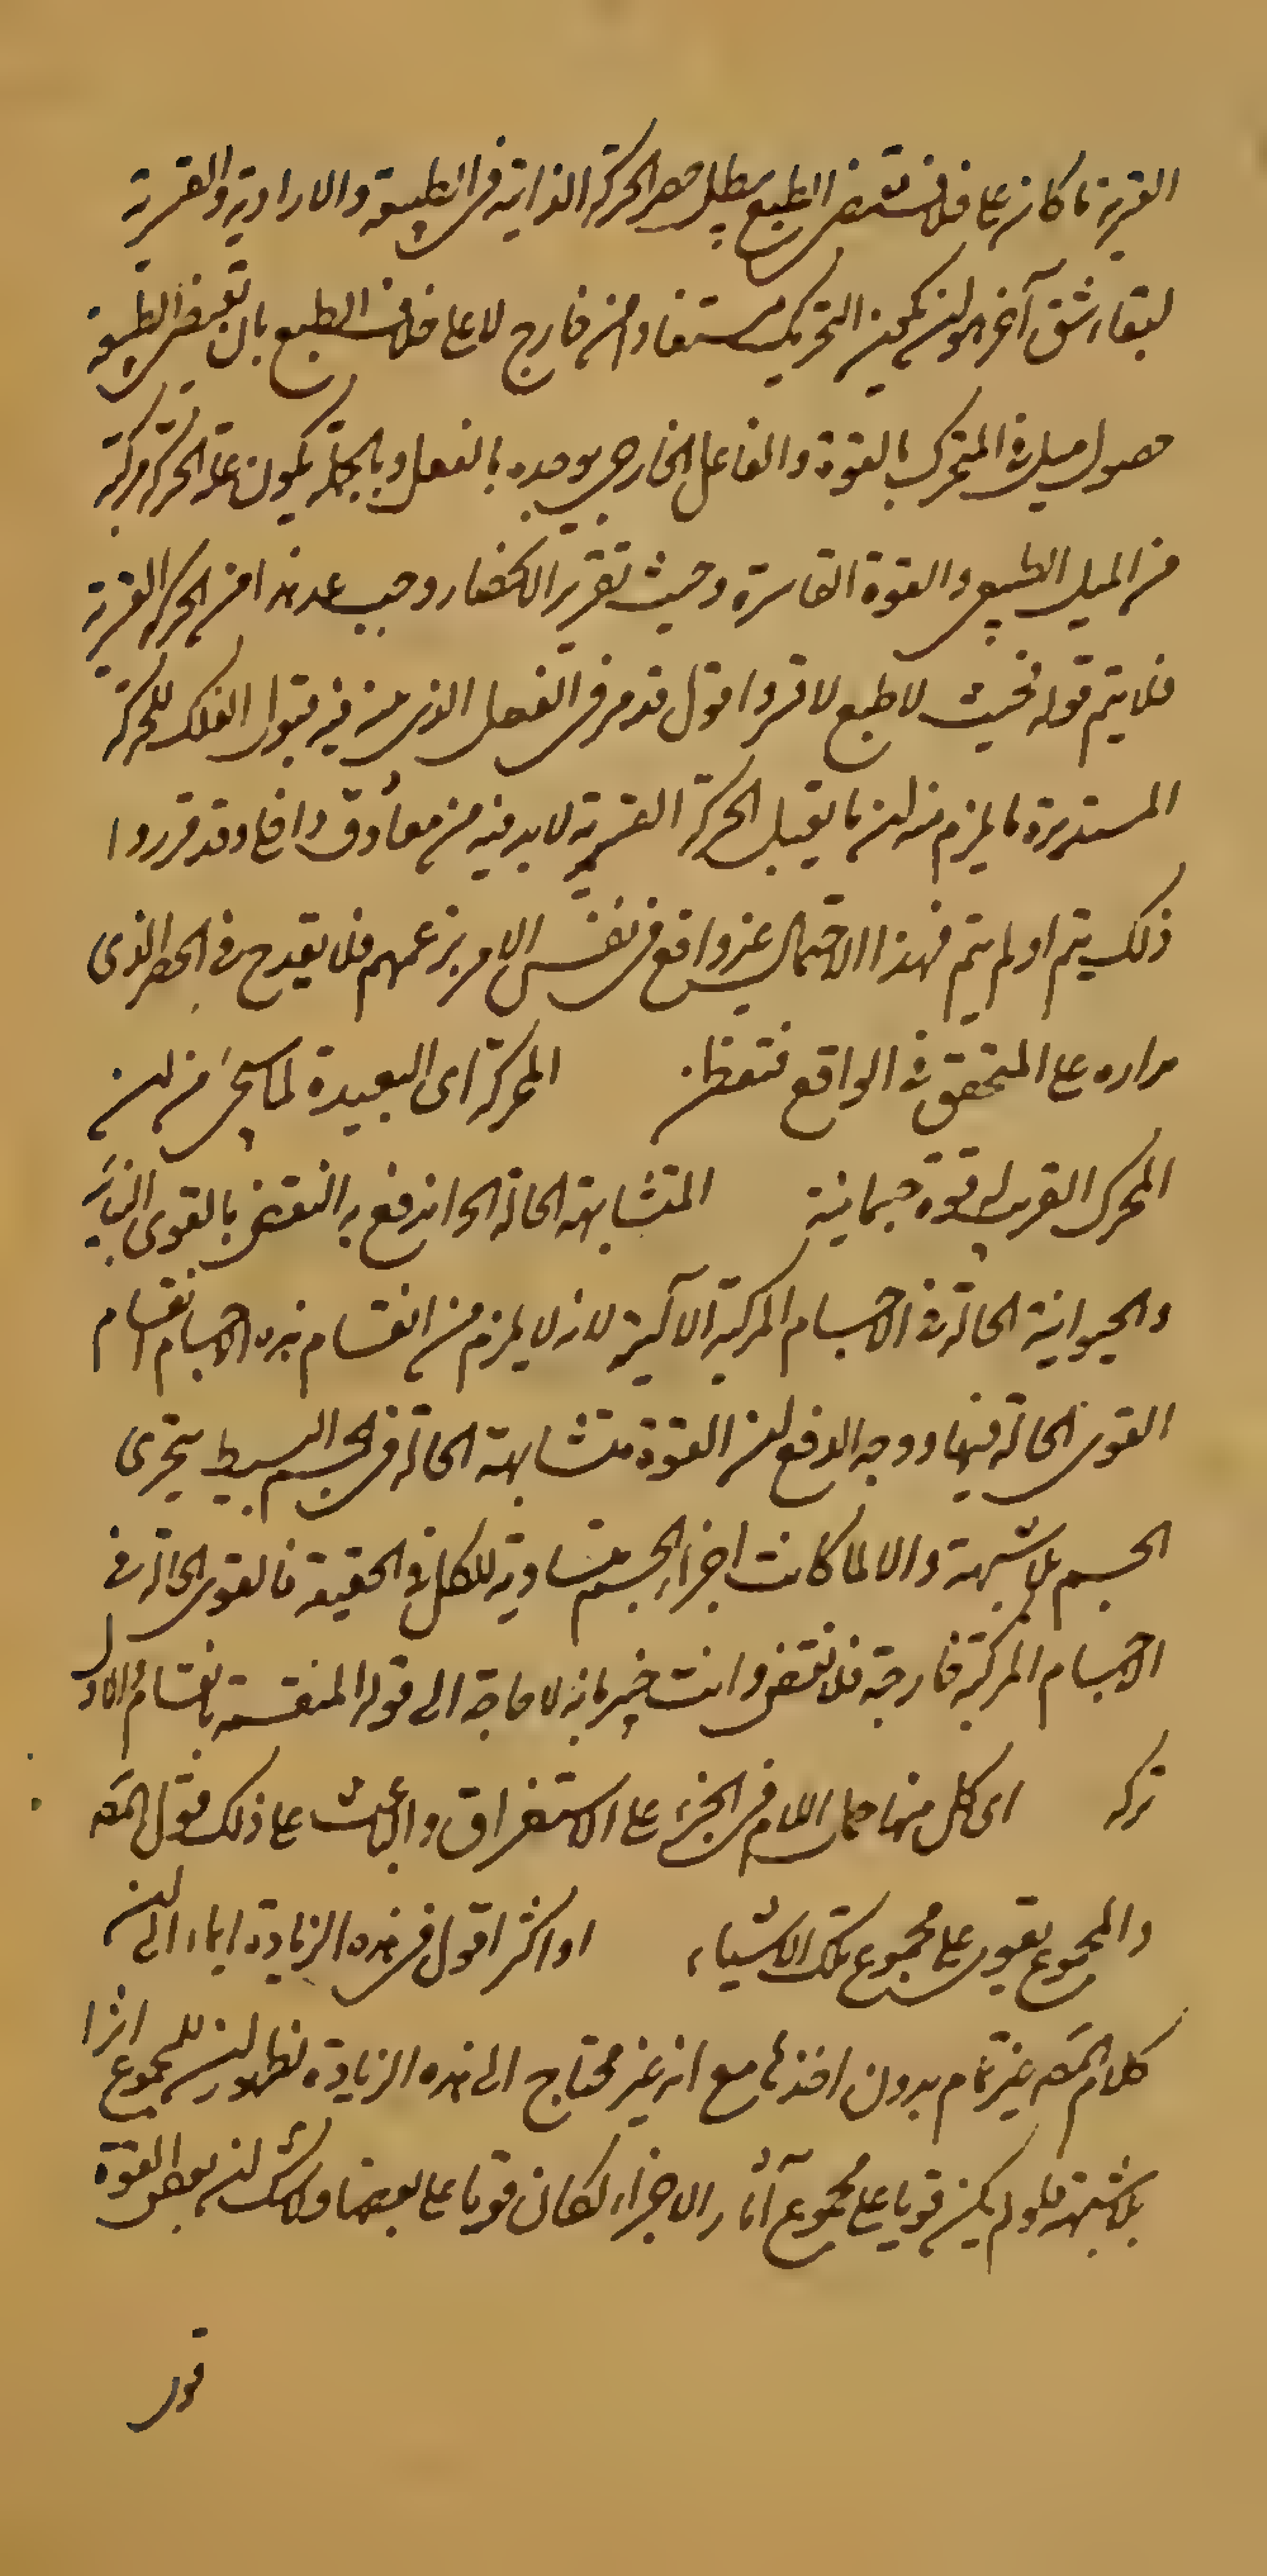 القسرية ما كان على خلاف مقتضى الطبع يبطل حصر الحركة الذاتية في الطبيعية والارادية والقسرية
لبقاء شق آخر هو ان يكون التحريك مستفادا من خارج لا على خلاف الطبع بان تقتضى الطبيعة
حصول ميل في المتحرك بالقوة والفاعل الخارجى يوجده بالفعل وبالجملة يكون علة الحركة مركبة
من الميل الطبيعى والقوة القاسرة وحيث تقرير الانحصار وجب عد هذا من الحركة القسرية
فلا يتم قوله فحيث لا طبع لا قسر اقول قد مر في الفصل الذى بين فيه قبول الفلك للحركة
المستديرة ما يلزم منه ان ما يقبل الحركة القسرية لابد فيه من معاوق داخلى وقد قرروا
ذلك يتم او لم يتم فهذا الاحتمال غير واقع في نفس الامر بزعمهم فلا يقدح في الحصر الذى
مداره على المتحقق في الواقع فتفطن المحركة اى البعيدة لما سيجئ من ان
المحرك القريب له قوة جسمانية المتشابهة الحالة الخ اندفع به النقض بالقوى النباتية
والحيوانية الحالة في الاجسام المركبة الآلية لانه لا يلزم من انقسام هذه الاجسام انقسام
القوى الحالة فيها ووجه الدفع ان القوة متشابهة الحالة في الجسم البسيط يتجزى
الجسم بلا شبهة والا لما كانت اجزاء الجسم متساوية للكل في الحقيقة فالقوى الحالة في
الاجسام المركبة خارجة فلا نقض وانت خبير بانه لا حاجة الى قوله المنقسمة بانقسامه فالاولى
تركه اى كل منها حمل اللام في الجزء على الاستغراق والباعث على ذلك قول المصـ
والمجموع يقوى على مجموع تلك الاشياء او اكثر اقول في هذه الزيادة ايماء الى ان
كلام المصـ غير تمام بدون اخذها مع انه غير محتاج الى هذه الزيادة لظهور ان للمجموع اثرا
بلا شبهة فلو لم يكن قويا على مجموع آثار الاجزاء لكان قويا على بعضها ولا شك ان بعض القوة